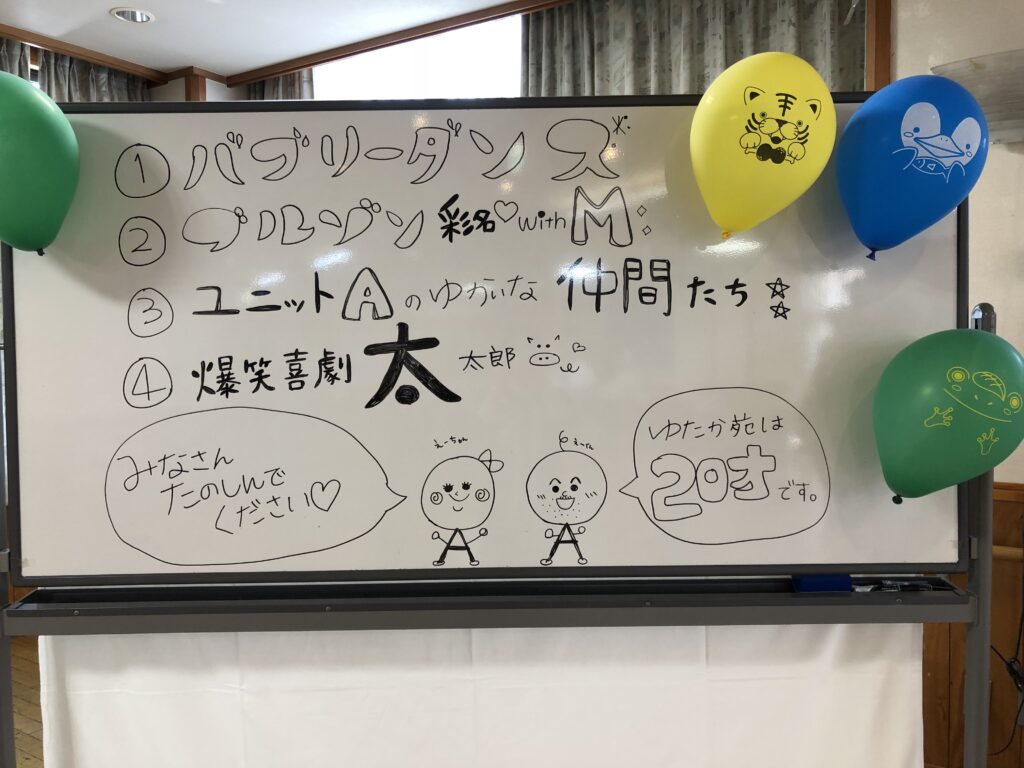 ① バブリーダンス
② ブルゾン 彩名♡with M
③ ユニットAのゆかいな仲間たち☆☆
④ 爆笑喜劇 太 太郎
みなさん
たのしんで
ください♡
えーちゃん
えーくん
ゆたか苑は
20才です。
A
A